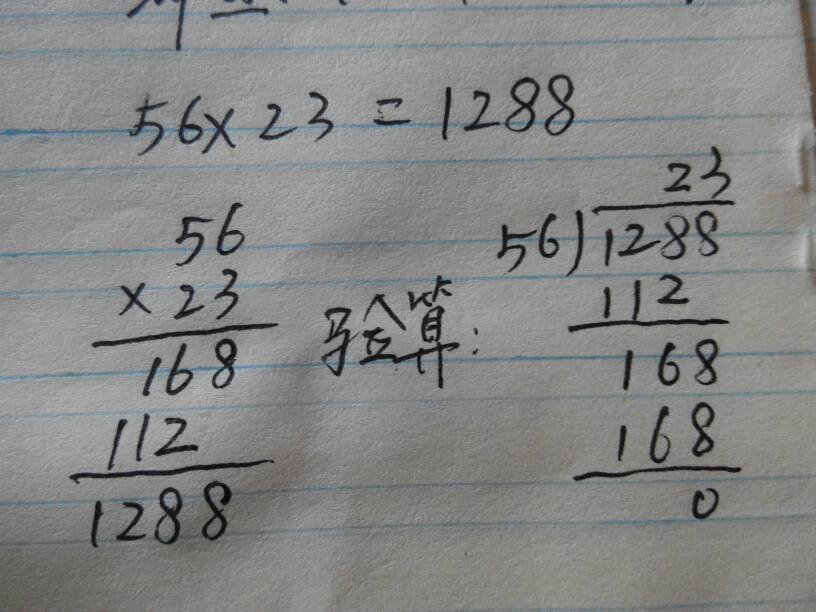 56×23=1288
56
×23
168
112
1288
验算:
23
56)1288
112
168
168
0